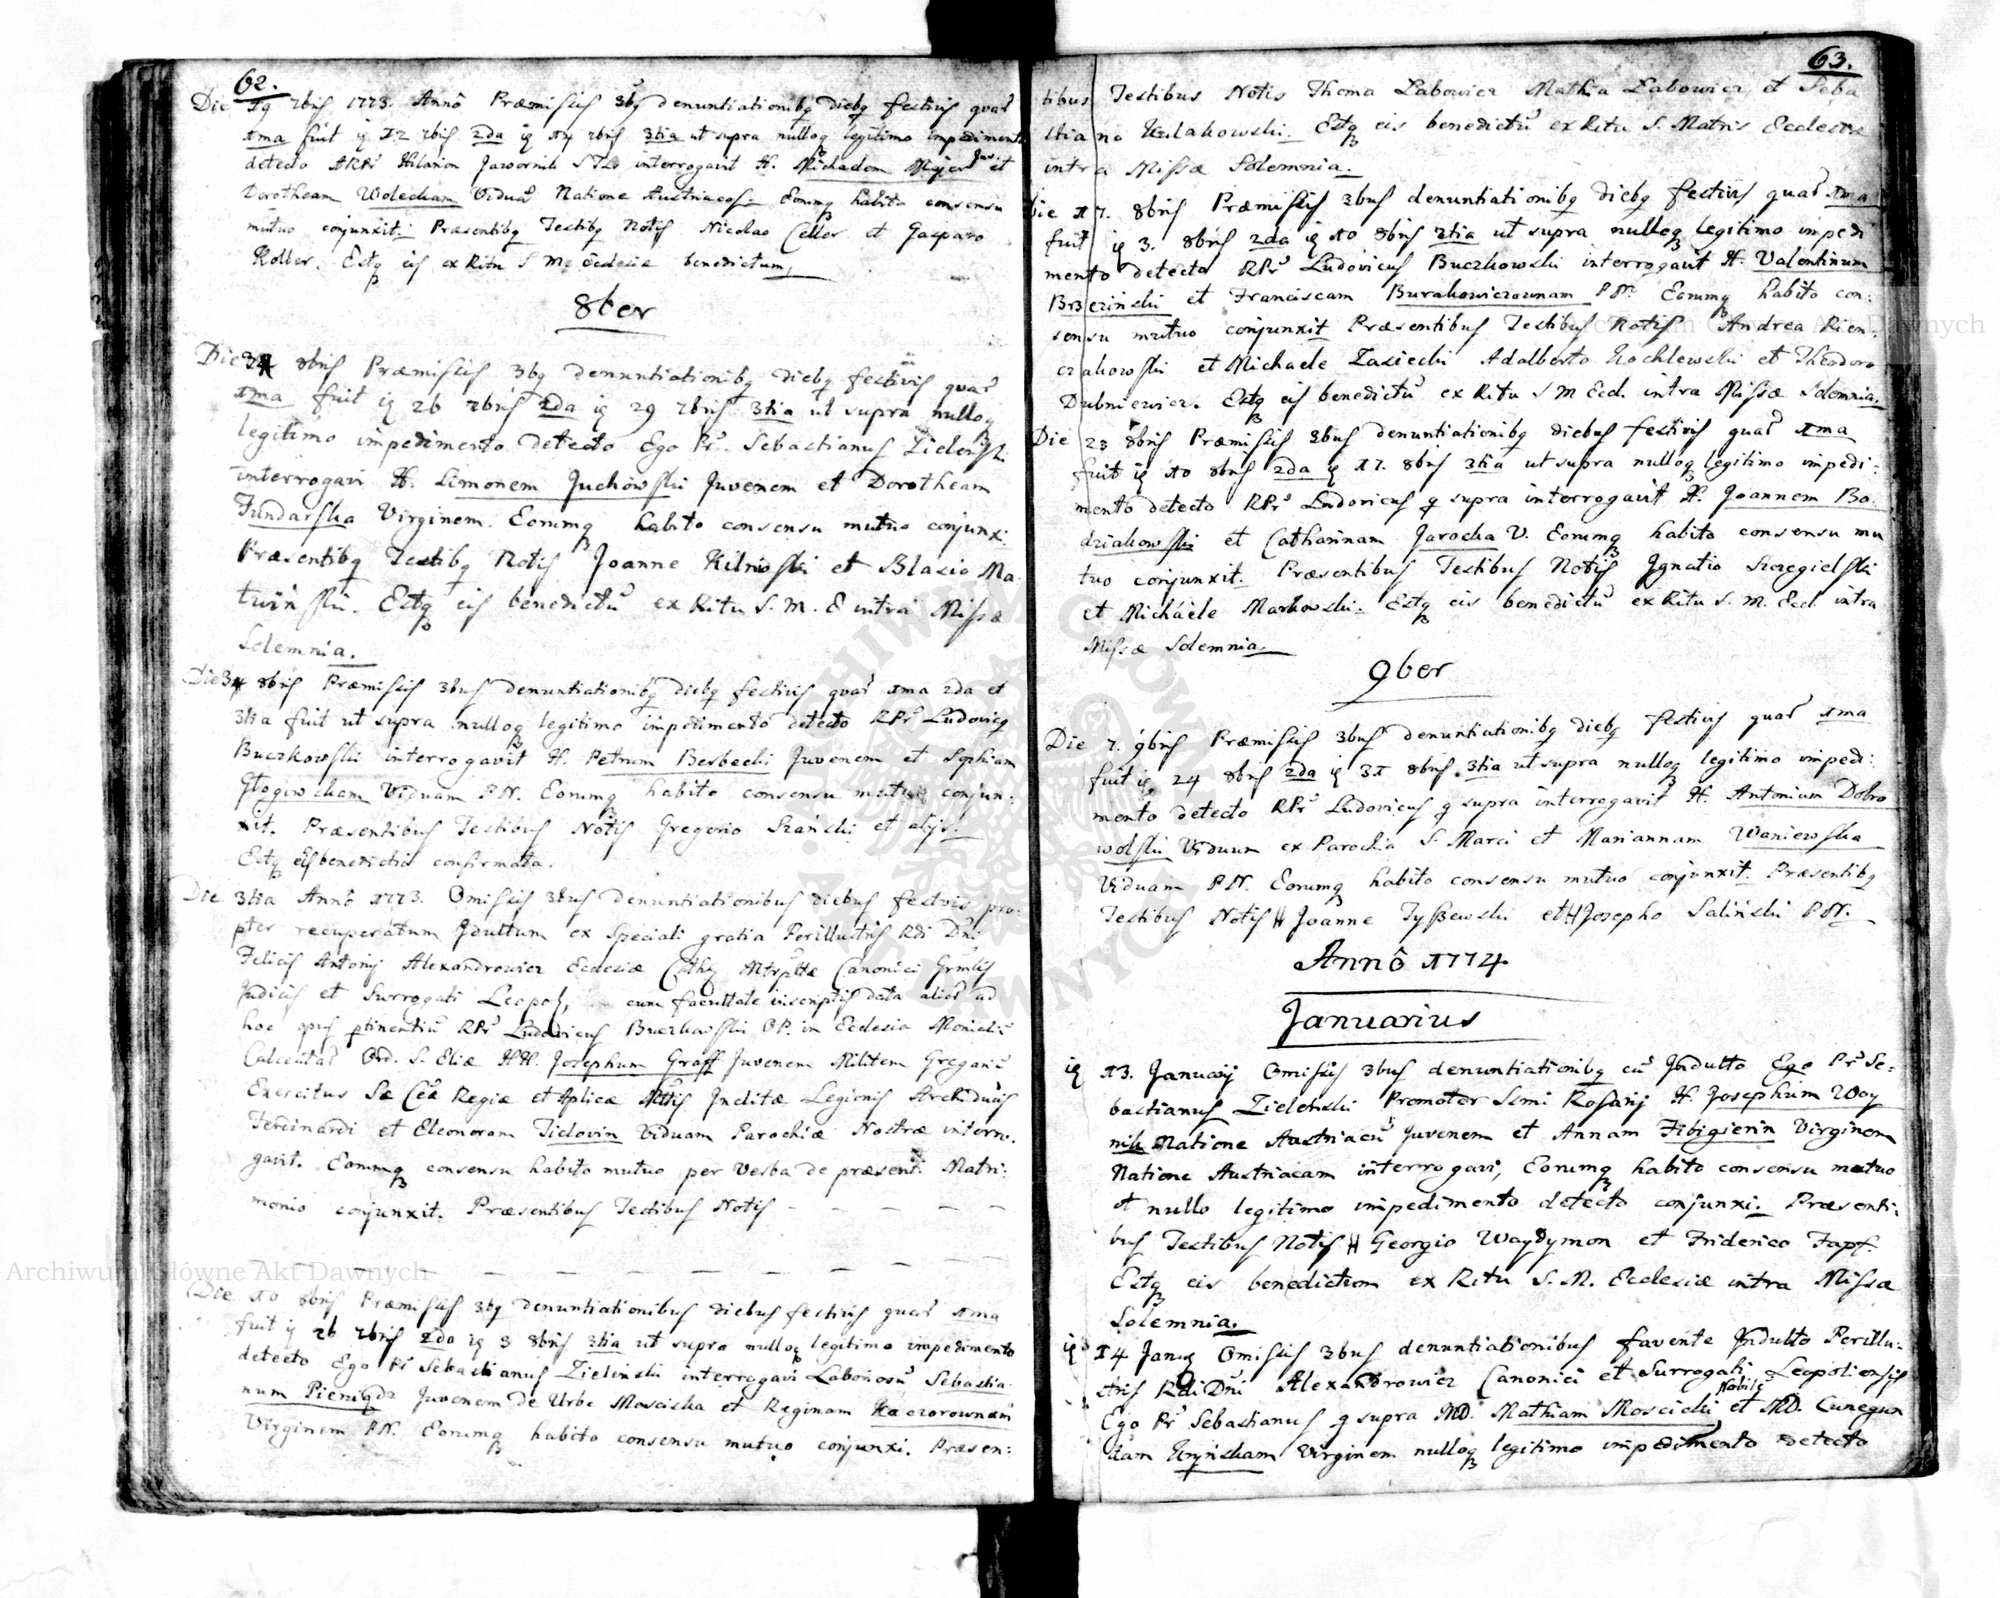 62.
Die 19 7bris 1773. Annô Præmissis 3bq denuntiationibq diebq festivis quar
1ma fuit ig 12 7bris 2da ig 14 7bris 3tia ut supra nulloq legitimo impedimento
detecto ARPr Hilarion Jawornik STLr interrogavit H. Michaelem Majer Juv. et
Dorotheam Woleckam Viduã Natione Austriacos. Eorumq habito consensu
mutuo conjunxit. Præsentibq Testibq Notis Nicolao Celler et Gasparo
Koller. Estq eis ex Ritu S Mq Ecclesiæ benedictum,
8ber
Die 8bris Præmissis 3bq denuntiationibq diebq festivis quar
1ma fuit ig 26 7bris 2da ig 29 7bris 3tia ut supra nulloq
legitimo impedimento detecto Ego Pr. Sebastianus Zielenski
interrogavi H. Simonem Juchowski Juvenem et Dorotheam
Fundarska Virginem. Eorumq habito consensu mutuo conjunxi.
Præsentibq Testibq Notis Joanne Kilinski et Blasio Ma
twinski. Estq eis benedictũ ex Ritu S. M. E intra Missæ
Solemnia.
Die 8bris Præmissis 3bus denuntiationibq diebq festivis quar 1ma 2da et
3tia fuit ut supra nulloq legitimo impedimento detecto RPr Ludovicq
Buczkowski interrogavit H. Petrum Berbecki Juvenem et Sophiam
Głogowskam Viduam PN. Eorumq habito consensu mutuo conjun:
xit. Præsentibus Testibus Notis Gregorio Szański et alijs.
Estq eis benedictio confirmata.
Die 3tia Annô 1773. Omissis 3bus denuntiationibus diebus festivis pro:
pter recuperatum Jdultum ex speciali gratia Perillustris Rdi Dni
Felicis Antonij Alexandrowicz Ecclesiæ Cathq Mtrpltæ Canonici Grmlis
Judicis et Surrogati Leopol, cum facultate in scriptis data alias ad
hoc opus ptinentiũ RPr Ludovicus Buczkowski OP. in Ecclesia Monialiũ
Calceatar Ord. S. Eliæ HH. Josephum Graff Juvenem Militem Gregariũ
Exercitus Sæ Cæ Regiæ et Aplicæ Mttis Jnclitæ Legionis Archiducis
Ferdinandi et Eleonoram Tielovin Viduam Parochiæ Nostræ interro.
gavit. Eorumq consensu habito mutuo per Verba de præsenti Matri:
monio conjunxit. Præsentibus Testibus Notis
Die 10 8bris Præmissis 3bq denuntiationibus diebus festivis quar 1ma
fuit ig 26 7bris 2da ig 3 8bris 3tia ut supra nulloq legitimo impedimento
detecto Ego Pr Sebastianus Zielinski interrogavi Laboriosũ Sebastia
num Pieniądz Juvenem De Urbe Mosciska et Reginam Kaczorownam
Virginem PN. Eorumq habito consensu mutuo conjunxi. Præsen:
63.
tibus Testibus Notis Thoma Labowicz Mathia Labowicz et Seba
stiano Kulakowski. Estq eis benedictũ ex Ritu S. Matris Ecclesiæ
intra Missæ Solemnia.
Die 17. 8bris Præmissis 3bus denuntiationibq diebq festivis quar 1ma
fuit ig 3. 8bris 2da ig 10 8bris 3tia ut supra nulloq legitimo impedi
mento detecto RPr Ludovicus Buczkowski interrogavit H. Valentinum
Brzezinski et Franciscam Burakowiczownam PN. Eorumq habito con:
sensu mutuo conjunxit Præsentibus Testibus Notis Andrea Rien.
czakowski et Michaele Zasiecki Adalberto Kochlewski et Theodoro
Dubniewicz. Estq eis benedictũ ex Ritu S M Eccl. intra Missæ Solemnia.
Die 23 8bris Præmissis 3bus denuntiationibq diebus festivis quar 1ma
fuit ig 10 8bris 2da ig 17. 8bris 3tia ut supra nulloq legitimo impedi:
mento detecto RPr Ludovicus q supra interrogavit H. Joannem Bo:
dziakowski et Catharinam Jarocka V. Eorumq habito consensu mu
tuo conjunxit. Præsentibus Testibus Notis Jgnatio Szczegielski
et Michaele Markowski. Estq eis benedictũ ex Ritu S. M. Eccl. intra
Missæ Solemnia.
9ber
Die 7. 9bris Præmissis 3bus denuntiationibq diebq festivis quar 1ma
fuit ig 24 8bris 2da ig 31 8bris 3tia ut supra nulloq legitimo impedi:
mento detecto RPr Ludovicus q supra interrogavit H. Antonium Dobro
wolski Viduum ex Parochia S. Marci et Mariannam Waniewska
Viduam PN. Eorumq habito consensu mutuo conjunxit. Præsentibq
Testibus Notis H Joanne Tyszewski et H Josepho Saliński PN.
Annô 1774.
Januarius
ig 13. Januarij Omissis 3bus denuntiationibq cũ Jndulto Ego Pr Se:
bastianus Zielonski Promotor Ssmi Rosarij H. Josephum Woy
nik Natione Austriacũ Juvenem et Annam Fibigierin Virginem
Natione Austriacam interrogavi, Eorumq habito consensu mutuo
et nullo legitimo impedimento detecto conjunxi. Præsenti:
bus Testibus Notis H Georgio Waydymon et Friderico Fapf.
Estq eis benedictiom ex Ritu S. M. Ecclesiæ intra Missæ
Solemnia.
ig 14 Janq Omissis 3bus denuntiationibus favente Jndulto Perillu:
stris Rdi Dni Alexandrowicz Canonici et Surrogati Leopoliensis
Ego Pr Sebastianus q supra MD. Mathiam Moscicki Nobile et MD. Cunegun
dam Kryńskam Virginem nulloq legitimo impedimento detecto
Archiwum Główne Akt Dawnych
Archiwum Główne Akt Dawnych